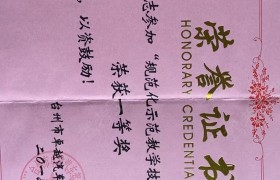 荣誉证书
HONORARY CREDENTIA
志参加“规范化示范教学技
荣获一等奖
，以资鼓励！
台州市卓越汽车
二〇一